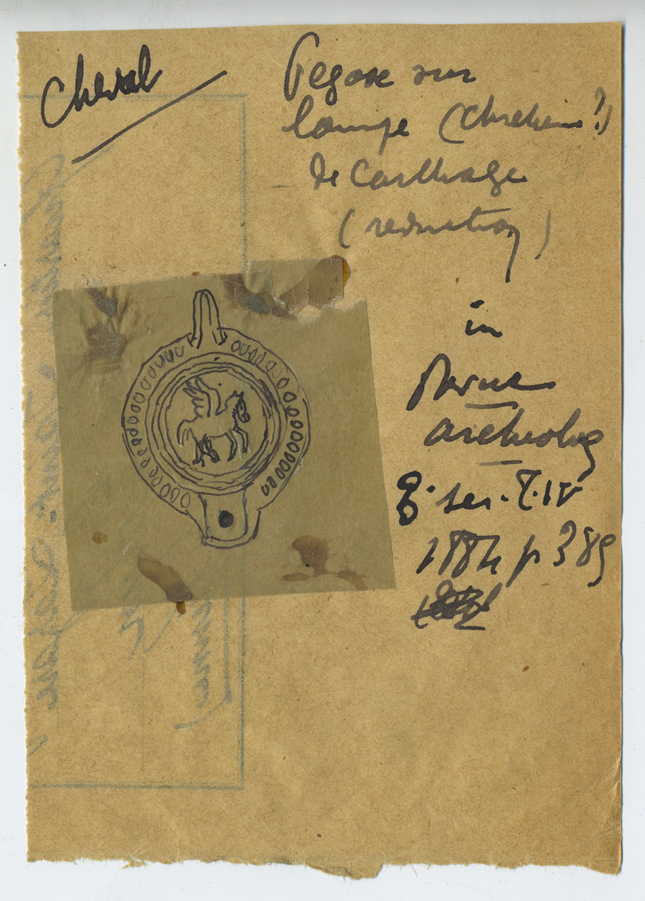 Cheval
Pegase sur
lampe (chretienne?)
de Carthage
(reduction)
in
Revue
archeolog
ser. T. IV
1884 p 389